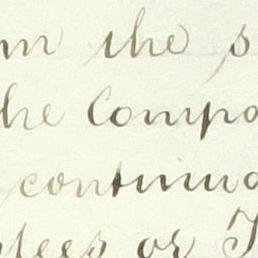 m the s
he Compa
continua
tees or T